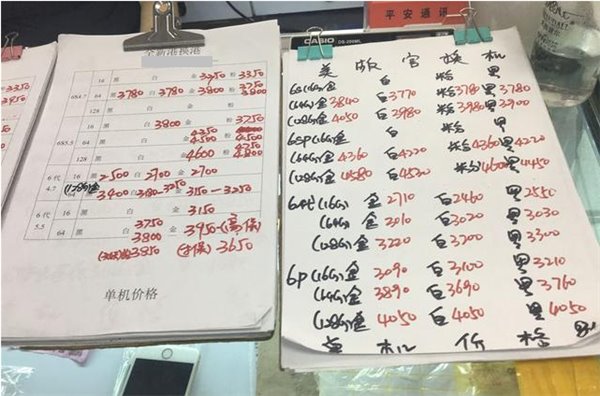 平安通讯
CASIO
全新港换港
16 黑 白 金 3350 粉 3350
6S4.7 64 黑 3780 白 3780 金 3800 粉 3750 3800
128 黑 白 金 粉
16 黑 3800 白 金 粉 3750
6S5.5 64 黑 白 金 4500 粉 4500
128 黑 白 金 4600 粉 4800
6代 16 黑 2500 白 2900 金 2700
4.7 (128G)金 3400 3150-3250
6代 16 黑 白 金 3150
5.5 64 黑 白 3750 金 3950
3800
3850 3650
单机价格
美版官换机
6s(16G)金 白 粉3780 黑3780
(64G)金3840 白3770 粉3980 黑3900
(128G)金4050 白3980
6sp(16G)金 白 粉 黑
(64G)金4360 白4220 粉4360 黑4220
(128G)金4580 白4520 粉4600 黑4450
6代(16G)金2710 白2460 黑2550
(64G)金3010 白3020 黑3030
(128G)金3220 白3200 黑3300
6p(16G)金3090 白3100 黑3210
(64G)金3890 白3690 黑3760
(128G)金4050 白4050 黑4050
单机价格